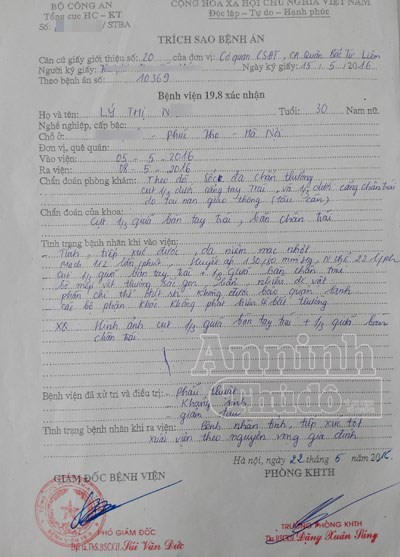 BỘ CÔNG AN
Tổng cục HC - KT
Số: /STBA
CỘNG HÒA XÃ HỘI CHỦ NGHĨA VIỆT NAM
Độc lập - Tự do - Hạnh phúc
TRÍCH SAO BỆNH ÁN
Căn cứ giấy giới thiệu số: 20 của đơn vị: Cơ quan CSĐT, CA Quận Bắc Từ Liêm
Người ký giấy: Ngày ký giấy: 15/5/2016
Theo bệnh án số: 10369
Bệnh viện 19.8 xác nhận
Họ và tên: LÝ THỊ N Tuổi: 30 Nam nữ.
Nghề nghiệp, cấp bậc:
Chỗ ở: Phúc Thọ - Hà Nội
Đơn vị, quê quán:
Vào viện: 05 - 5 - 2016
Ra viện: 08 - 5 - 2016
Chẩn đoán phòng khám: Theo dõi sốc đa chấn thương
cụt 1/3 dưới cẳng tay trái, và 1/3 dưới cẳng chân trái
do tai nạn giao thông (tàu cán)
Chẩn đoán của khoa:
Cụt 1/3 quá bàn tay trái, bàn chân trái
Tình trạng bệnh nhân khi vào viện:
- Tỉnh, tiếp xúc được, da niêm mạc nhợt
- Mạch 112 lần/phút, Huyết áp 130/80 mmHg, N thở 22 l/ph
- Cụt 1/3 quá bàn tay trái + 1/3 quá bàn chân trái
bờ mép vết thương sắc gọn, nhiều dị vật
phần chi thể đứt rời không được bảo quản lạnh
- Các bộ phận khác không phát hiện gì bất thường
- XQ: Hình ảnh cụt 1/3 quá bàn tay trái + 1/3 quá bàn
chân trái
Anninh
Thủđô.com
Bệnh viện đã xử trí và điều trị: - Phẫu thuật
- Kháng sinh
- giảm đau
Tình trạng bệnh nhân khi ra viện: Bệnh nhân tỉnh, tiếp xúc tốt
xuất viện theo nguyện vọng gia đình
Hà nội, ngày 22 tháng 5 năm 2016
GIÁM ĐỐC BỆNH VIỆN
PHÒNG KHTH
PHÓ GIÁM ĐỐC
Bùi Văn Đức
TRƯỞNG PHÒNG KHTH
Ths.BSCKII. Đặng Xuân Sáng